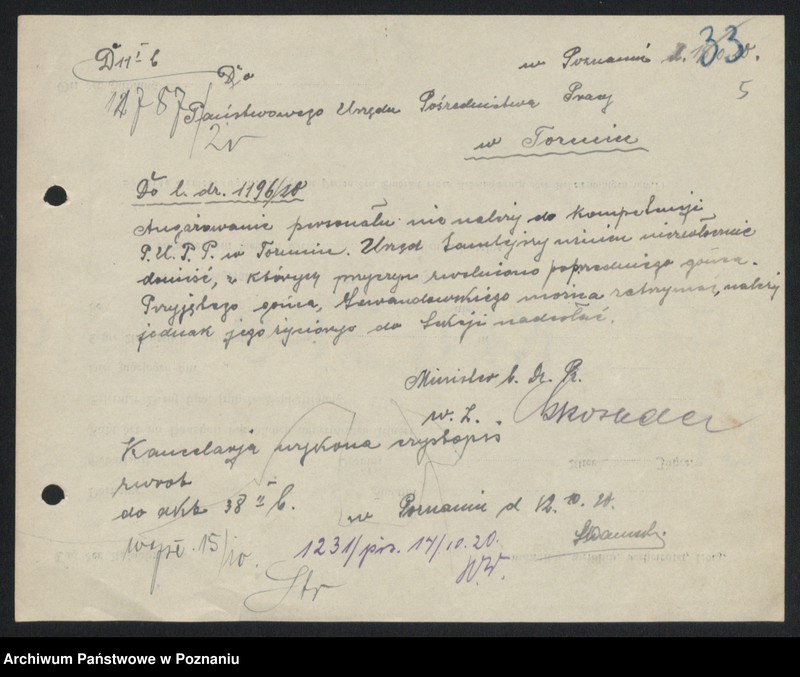 D II I b
33
w Poznaniu d. 10.20.
5
Do
12787/20
Państwowego Urzędu Pośrednictwa Pracy
w Toruniu
Do l. dr. 1196/20
Angażowanie personału nie należy do kompetencji
P.U.P.P. w Toruniu. Urząd tamtejszy winien niezwłocznie
donieść, z których przyczyn zwolniono poprzedniego gońca.
Przyjętego gońca, Lewandowskiego można zatrzymać, należy
jednak jego życiorys do Sekcji nadesłać.
Minister b. Dz. Pr.
w. z.
Kancelarja wykona czystopis
zwrot
do akt 38 II b.
w Poznaniu d 12.10.20.
wyp. 15/10.
1231/pis. 14/10.20.
Archiwum Państwowe w Poznaniu